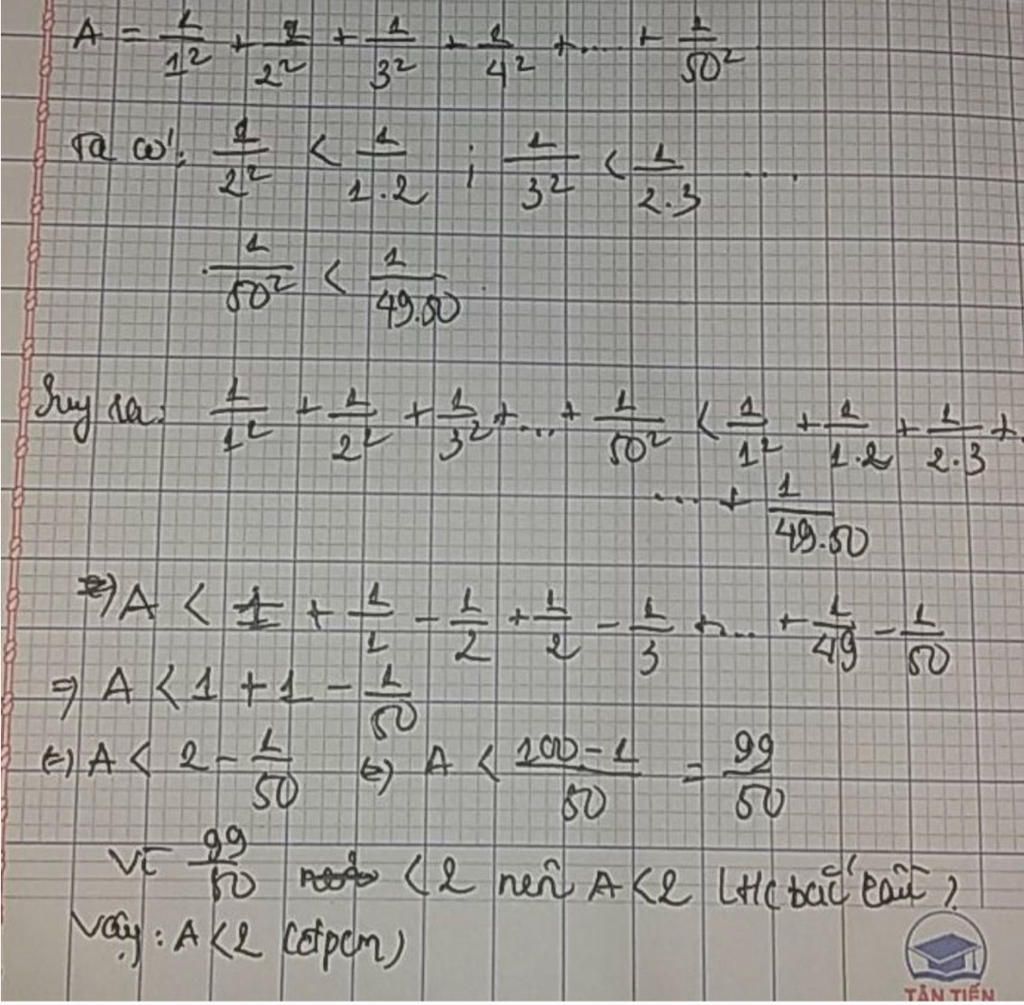 A = 1/1² + 1/2² + 1/3² + 1/4² + .... + 1/50²
Ta có: 1/2² < 1/1.2 ; 1/3² < 1/2.3 ....
1/50² < 1/49.50
Suy ra: 1/1² + 1/2² + 1/3² + ... + 1/50² < 1/1² + 1/1.2 + 1/2.3 + .
.... + 1/49.50
⇒ A < 1 + 1/1 - 1/2 + 1/2 - 1/3 + ... + 1/49 - 1/50
⇒ A < 1 + 1 - 1/50
⇔ A < 2 - 1/50 ⇔ A < (100 - 1)/50 = 99/50
Vì 99/50 < 2 nên A < 2 (t/c bắc cầu)
Vậy: A < 2 (đpcm)
TÂN TIẾN